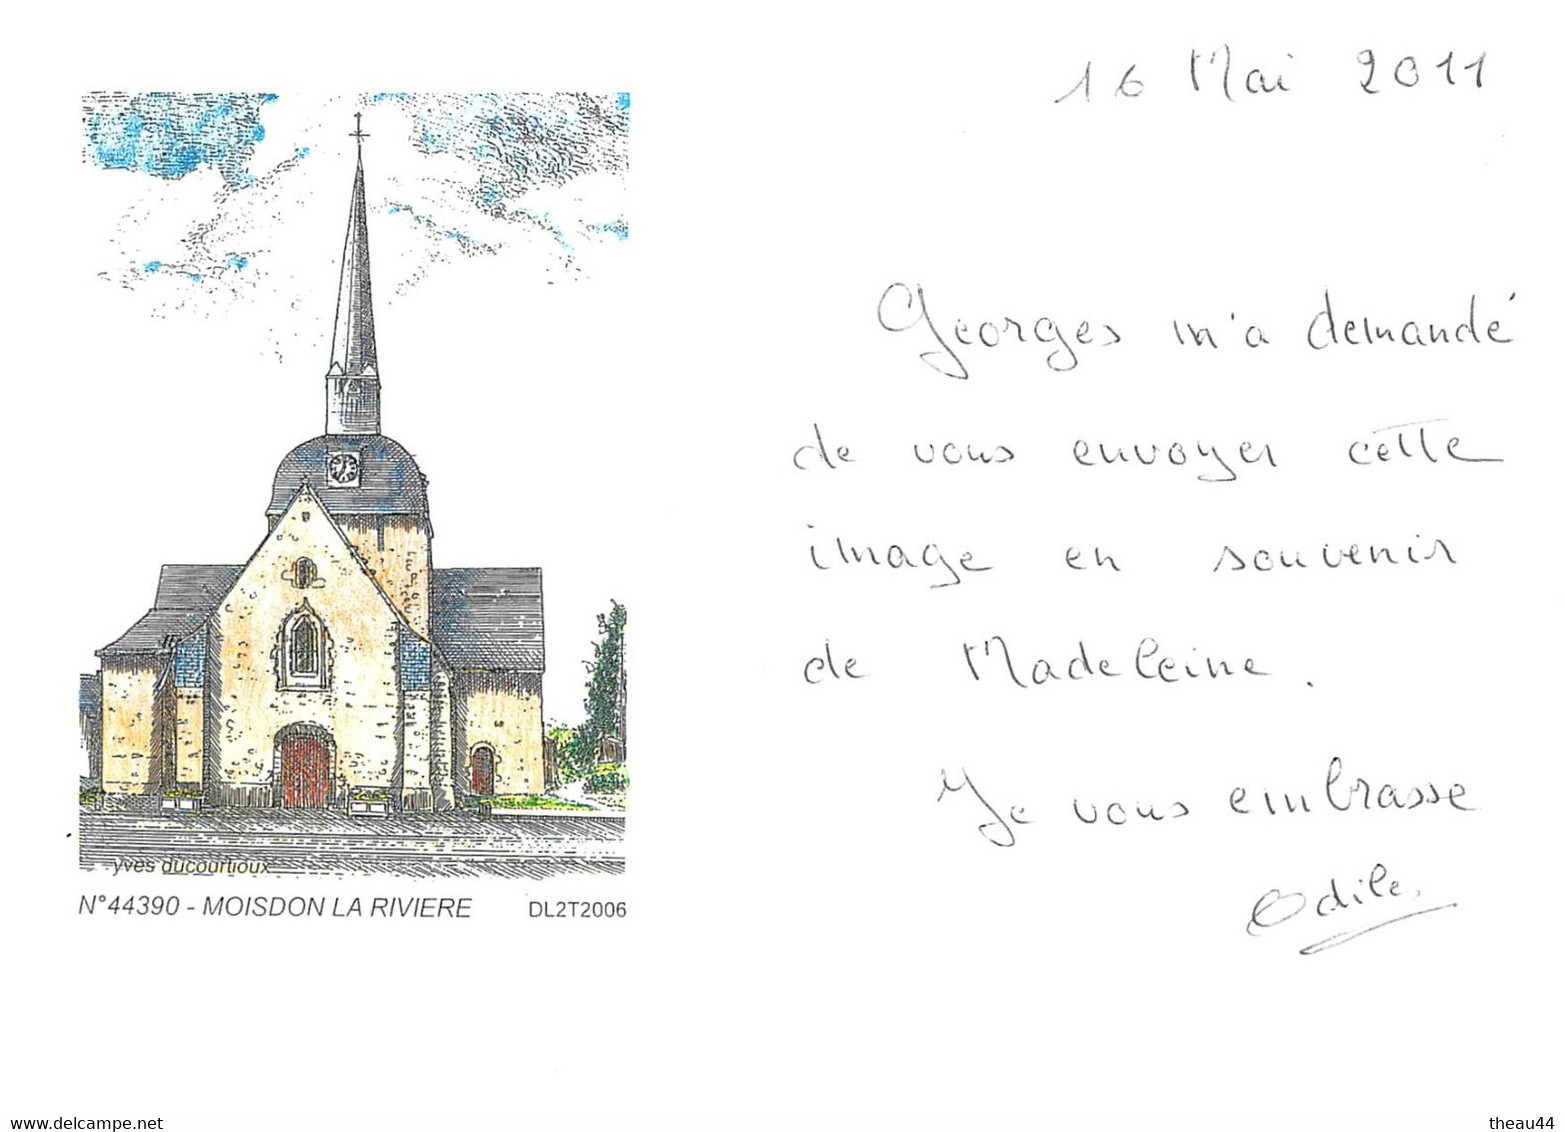 16 Mai 2011
Georges m'a demandé
de vous envoyer cette
image en souvenir
de Madeleine.
Je vous embrasse
Odile
yves ducourtioux
N°44390 - MOISDON LA RIVIERE DL2T2006
www.delcampe.net
theau44